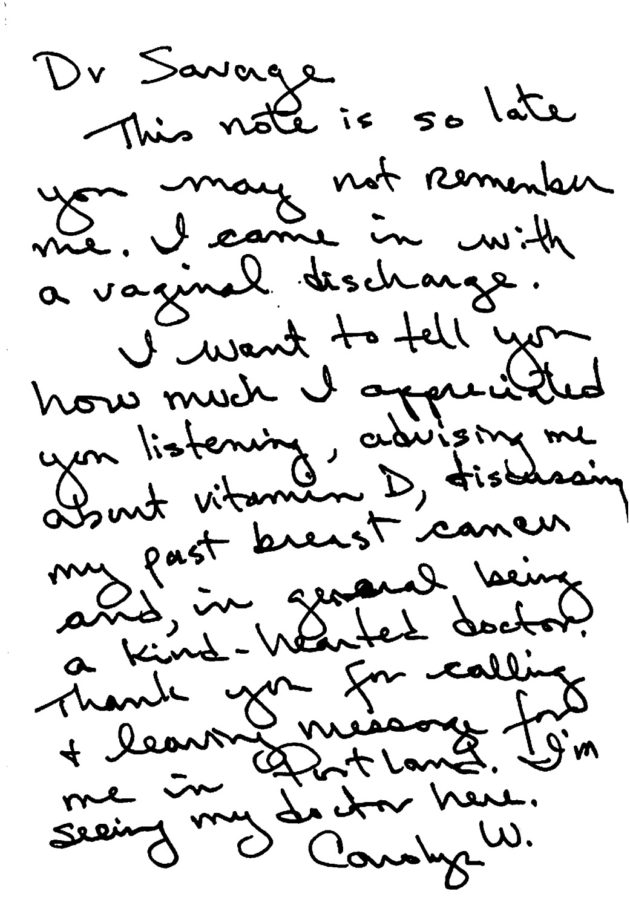 Dr Savage
This note is so late
you may not remember
me. I came in with
a vaginal discharge.
I want to tell you
how much I appreciated
you listening, advising me
about vitamin D, discussing
my past breast cancer
and, in general being
a kind-hearted doctor.
Thank you for calling
& leaving message for
me in Portland. I'm
seeing my doctor here.
Carolyn W.